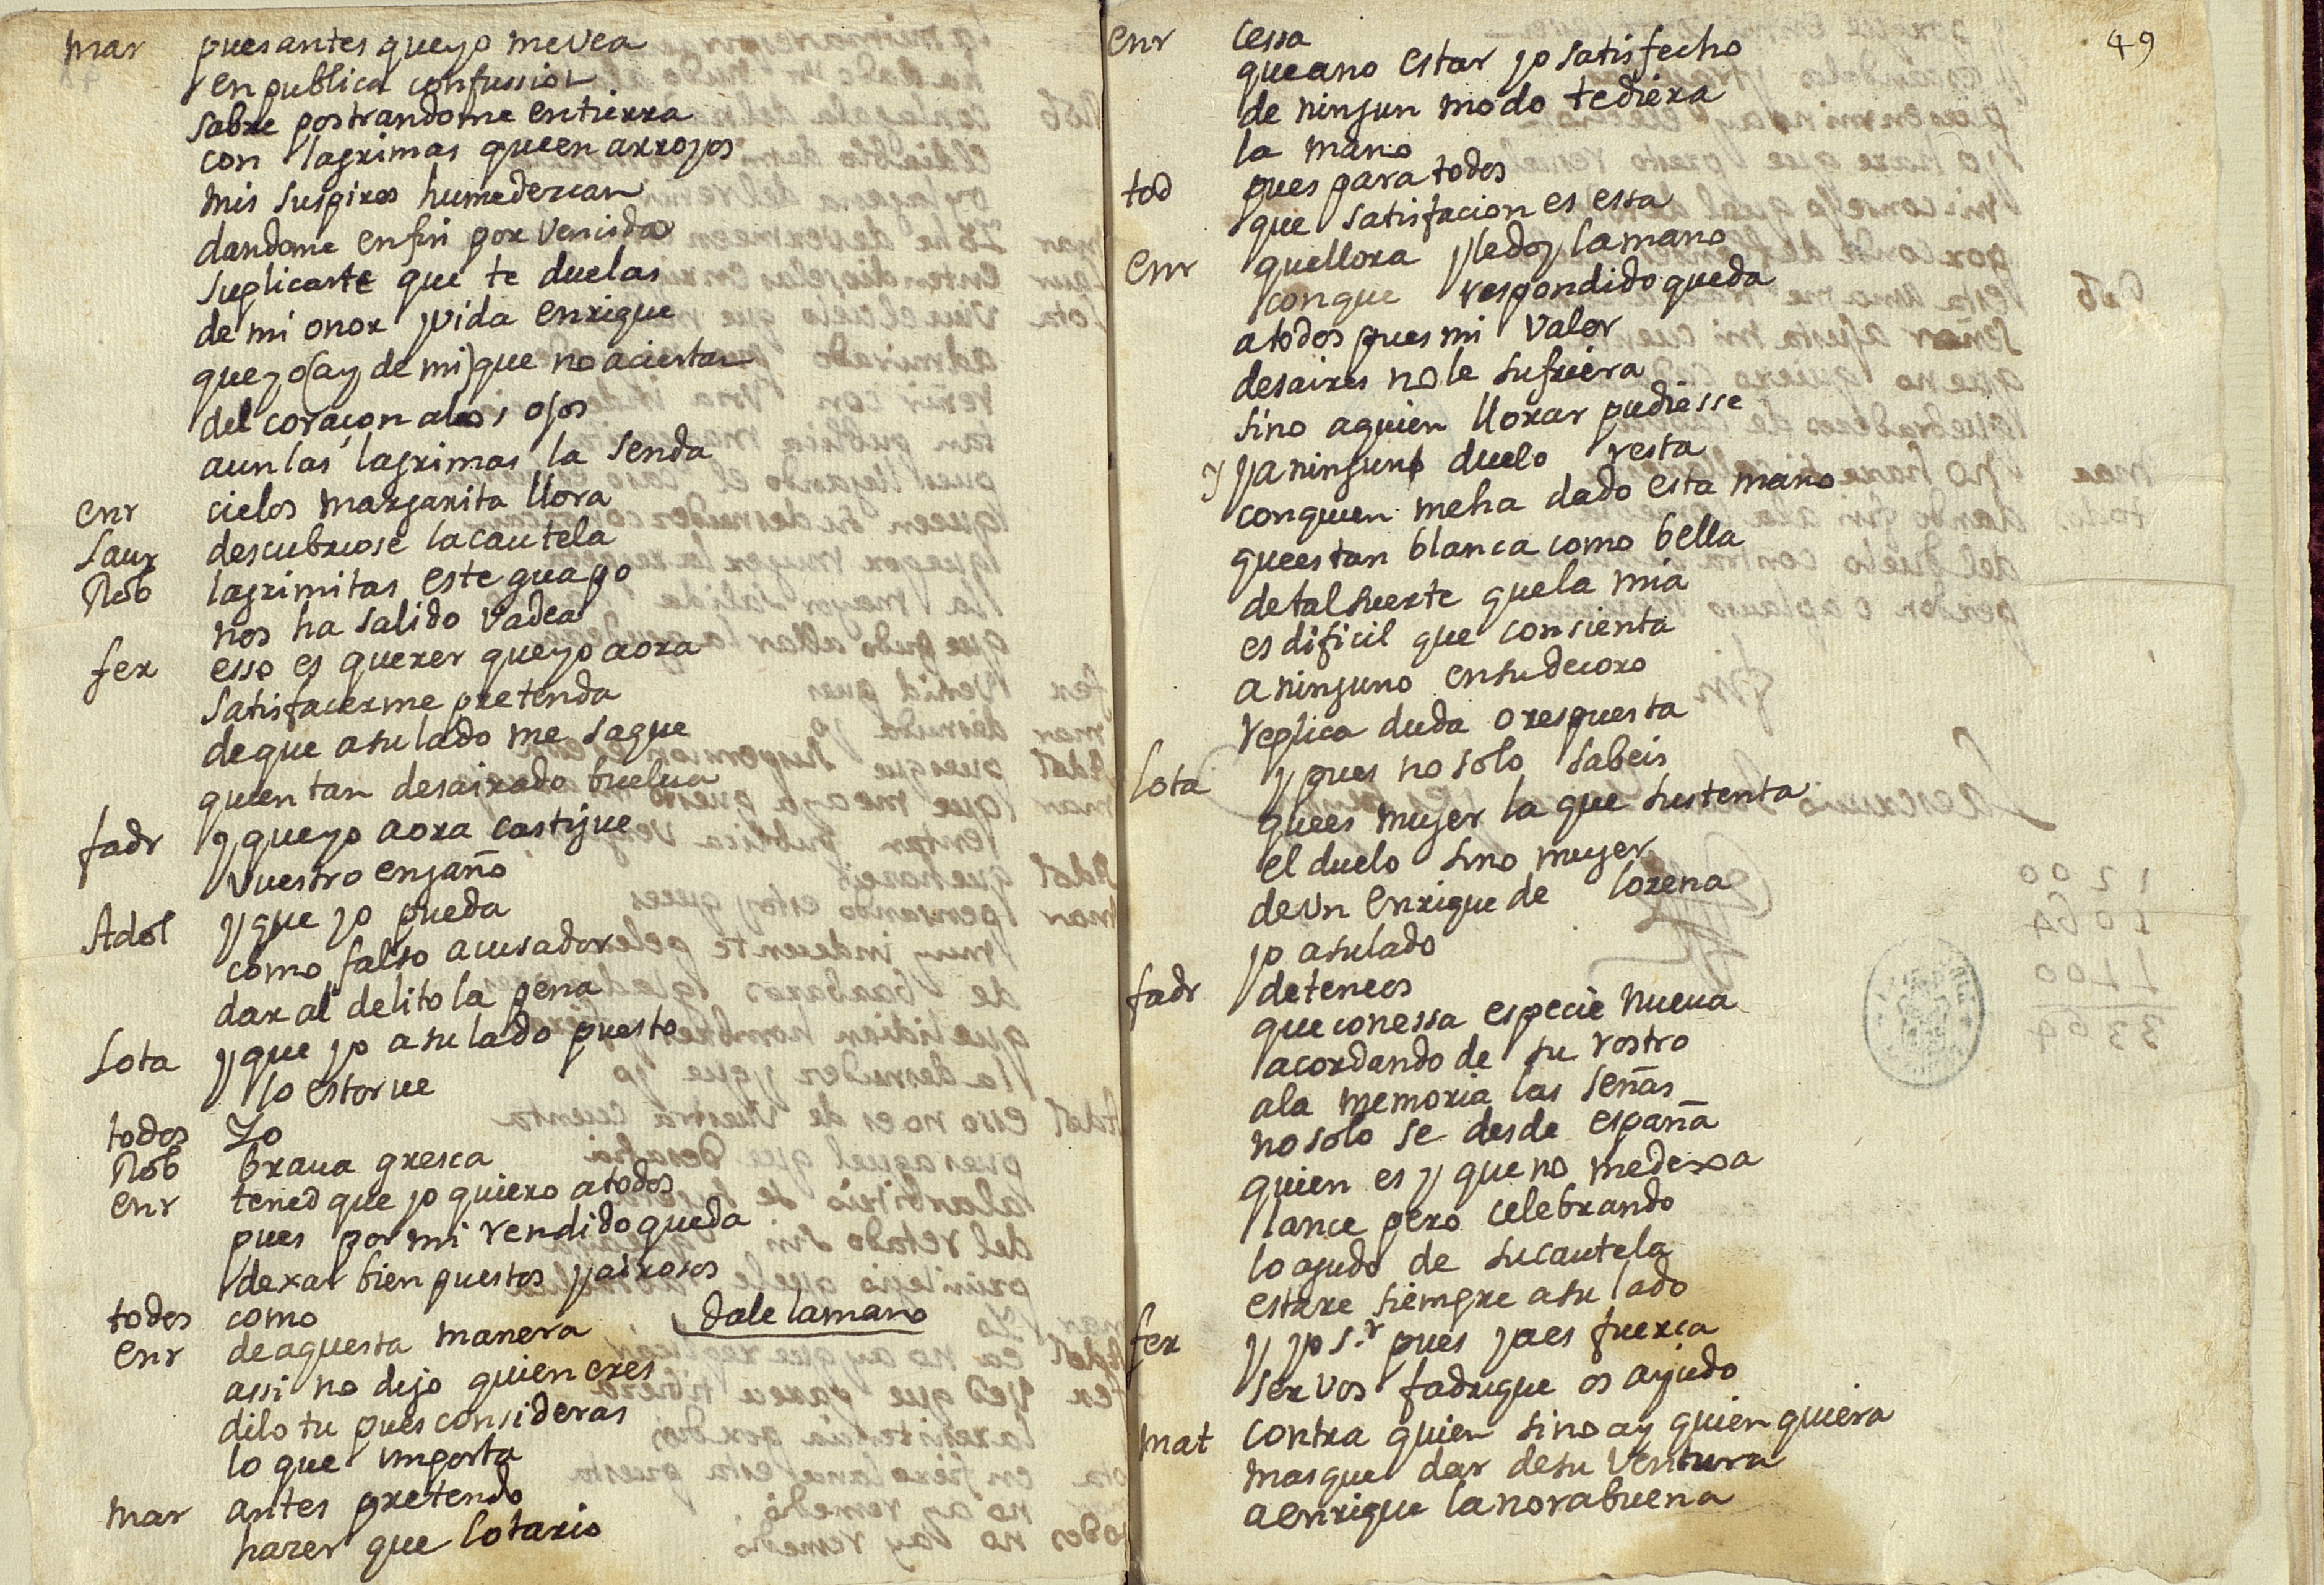 mar puesantes queyo mevea
en publica confussion
sabre postrandome entierra
con lagrimas queen arroyos
mis suspiros humedezcan
dandome enfin por vencida
suplicarte que te duelas
de mi onor y vida enrique
queyo (ay de mi) que no aciertan
del coraçon alos ojos
aun las lagrimas la senda
enr cielos margarita llora
Laur descubriose lacautela
Rob lagrimitas este guapo
nos ha salido vadea
fer esso es querer queyo aora
satisfacerme pretenda
deque asulado me saque
quien tan desairado buelua
fadr y queyo aora castigue
vuestro engaño
Adol y que yo pueda
como falso acusador
dar al delito la pena
Lota y que yo asulado puesto
lo estorue
todos Yo
Rob braua gresca
enr tened que yo quiero atodos
pues por mi rendido queda
dexar bien puestos yairosos
todos como
enr deaquesta manera dale lamano
assi no dijo quien eres
dilo tu pues consideras
lo que importa
mar antes pretendo
hazer que lotario
49
enr cessa
queano estar yo satisfecho
de ningun modo tediera
la mano
tod pues para todos
que satisfacion es essa
enr quellora yledoy lamano
conque respondido queda
atodos pues mi valor
desaires nole sufriera
sino aquien llorar pudiesse
y ya ningun duelo resta
conquien meha dado esta mano
queestan blanca como bella
detalsuerte quela mia
es dificil que consienta
aninguno ensudecoro
replica duda orespuesta
Lota y pues nosolo sabeis
quees mujer la que sustenta
el duelo sino mujer
deun enrique de lorena
yo asulado
fadr deteneos
queconessa especie nueua
acordando de su rostro
ala memoria las señas
nosolo se desde españa
quien es y que no medexa
lance pero celebrando
loagudo de sucautela
estare siempre asulado
fer y yo s.r pues yaes fuerça
ser vos fadrique os ayudo
mat contra quien sino ay quien quiera
masque dar desu ventura
aenrique lanorabuena